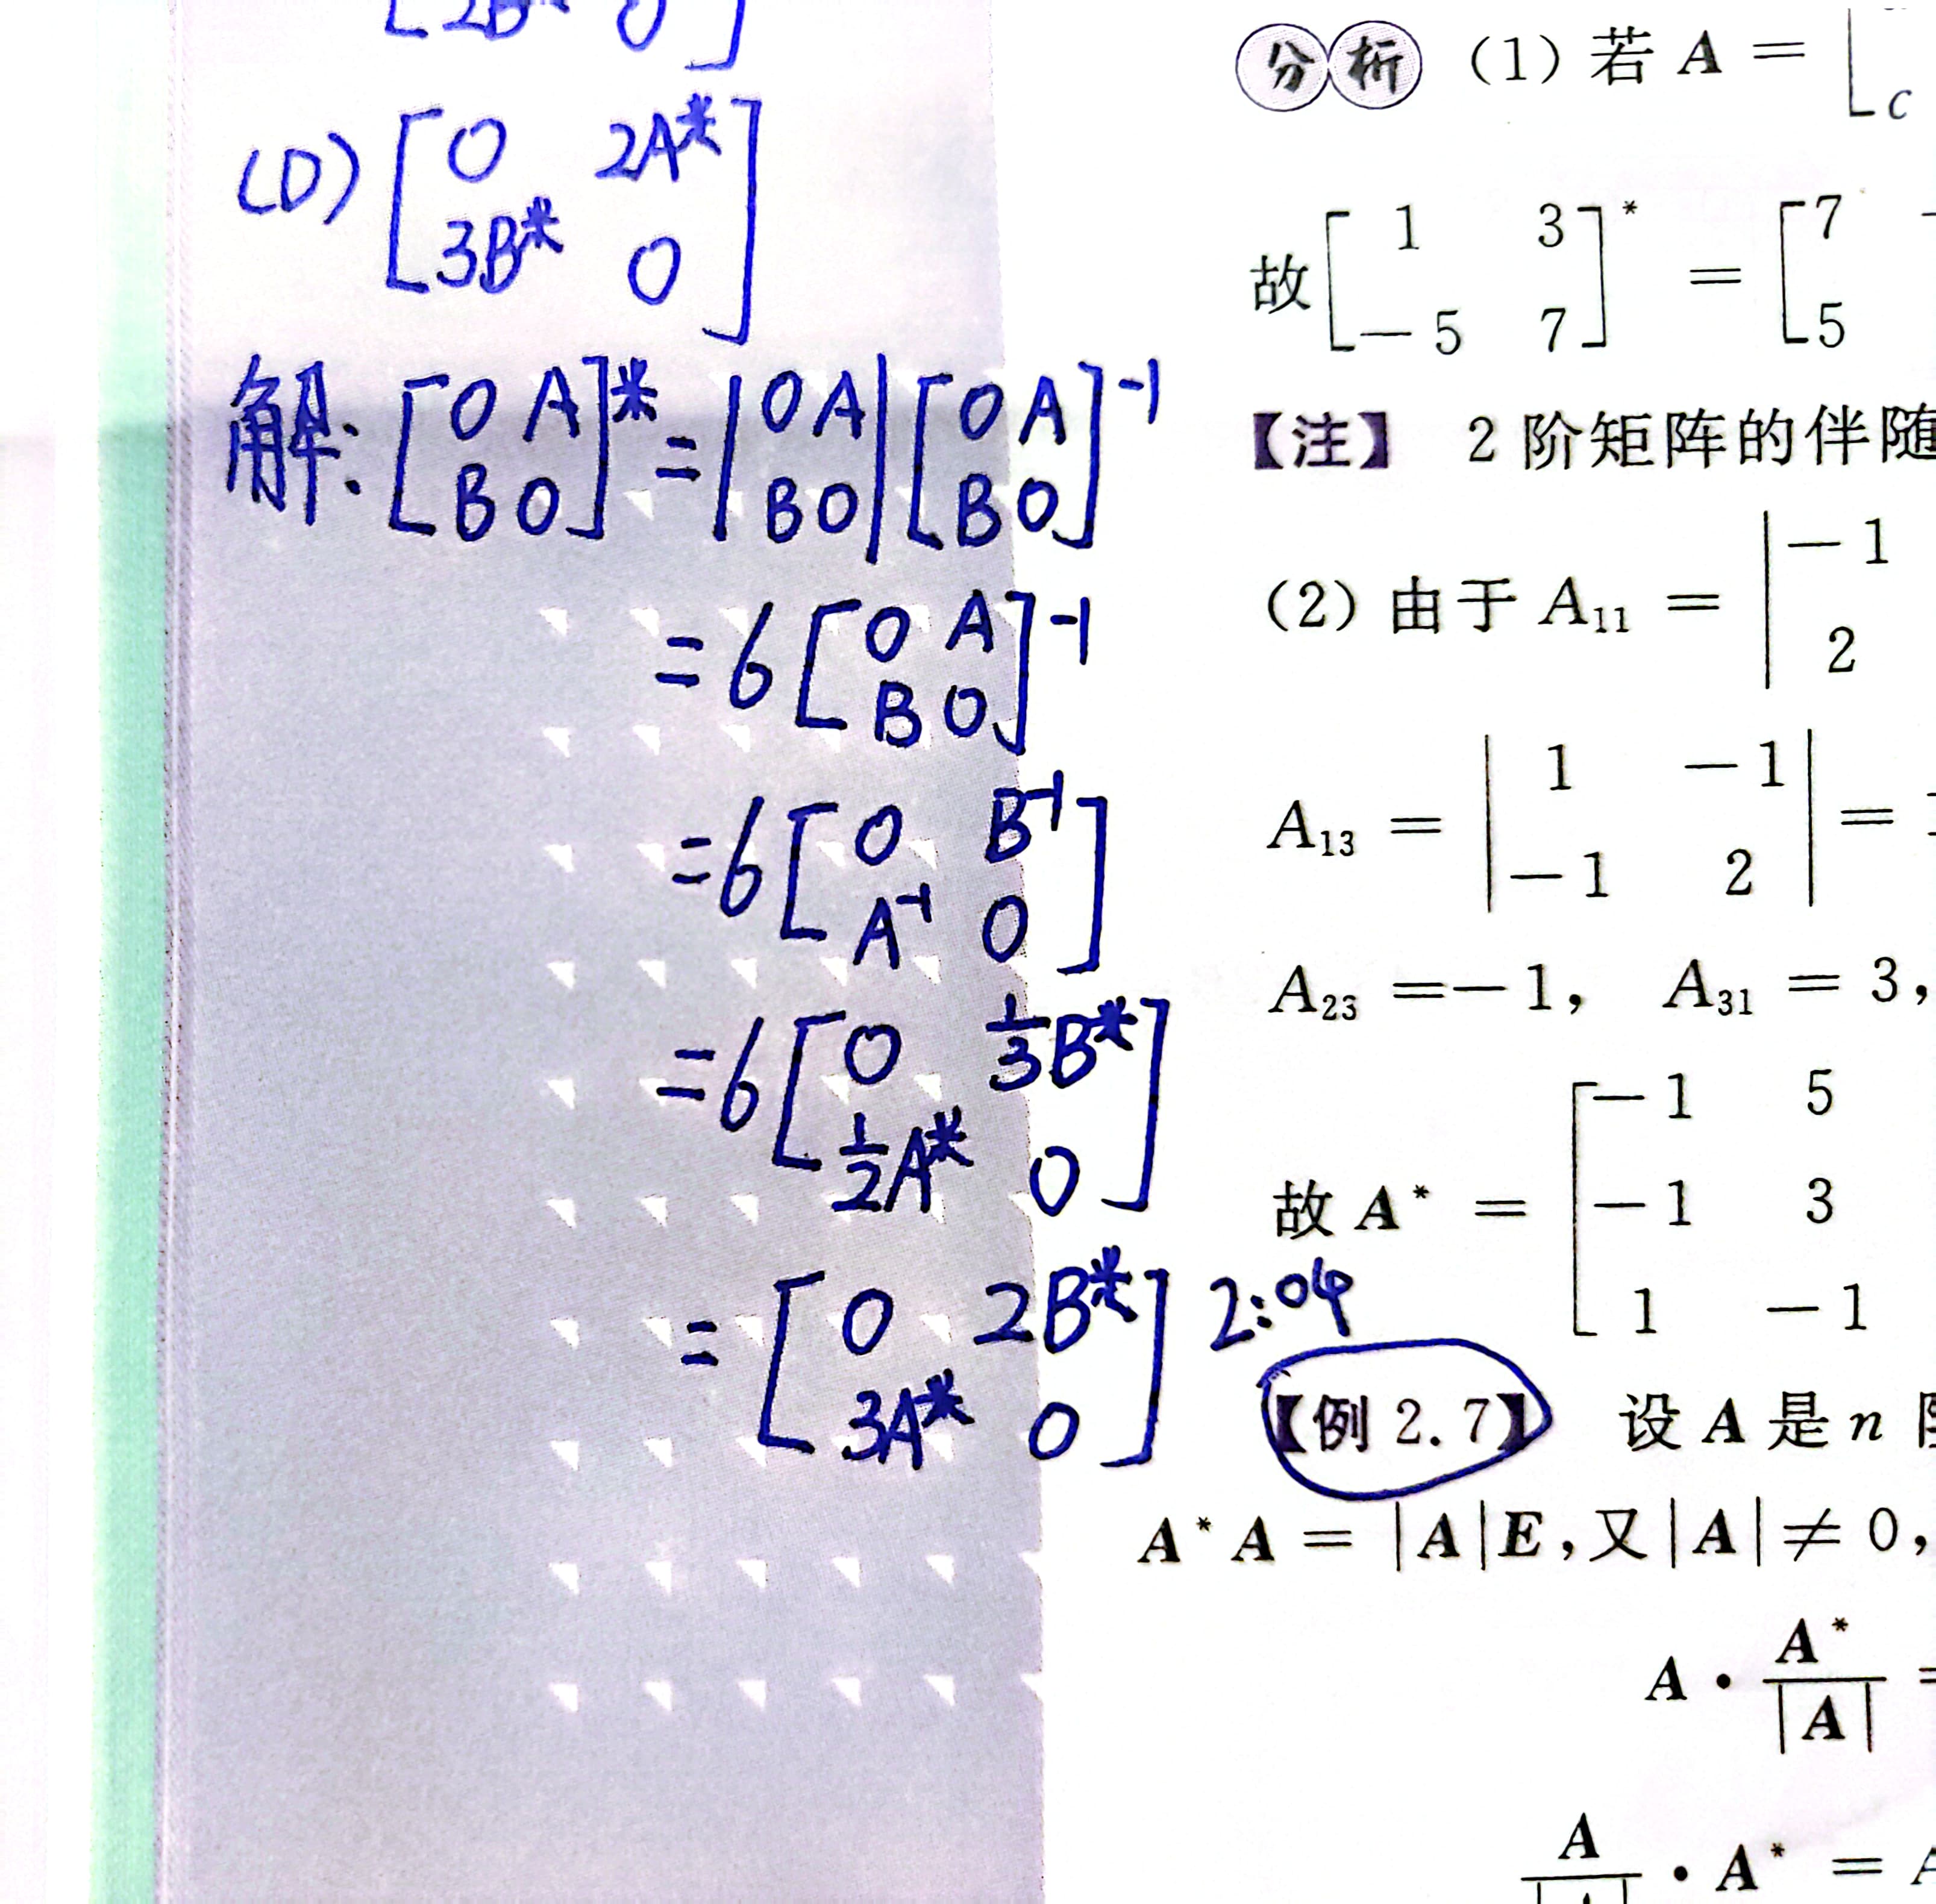 [2B* 0]
(D) [0 2A*
3B* 0]
解: [0 A
B 0]* = |0 A
B 0| [0 A
B 0]-1
= 6 [0 A
B 0]-1
= 6 [0 B-1
A-1 0]
= 6 [0 1/3 B*
1/2 A* 0]
= [0 2B*
3A* 0] 2:04
分析 (1) 若 A = [
c
故 [1 3
-5 7]* = [7
5
【注】 2 阶矩阵的伴随
(2) 由于 A11 = |-1
2
A13 = |1 -1
-1 2| =
A23 = -1, A31 = 3,
故 A* = [-1 5
-1 3
1 -1
【例 2.7】 设 A 是 n
A*A = |A|E, 又 |A| ≠ 0,
A · A*/|A| =
A/|A| · A* =